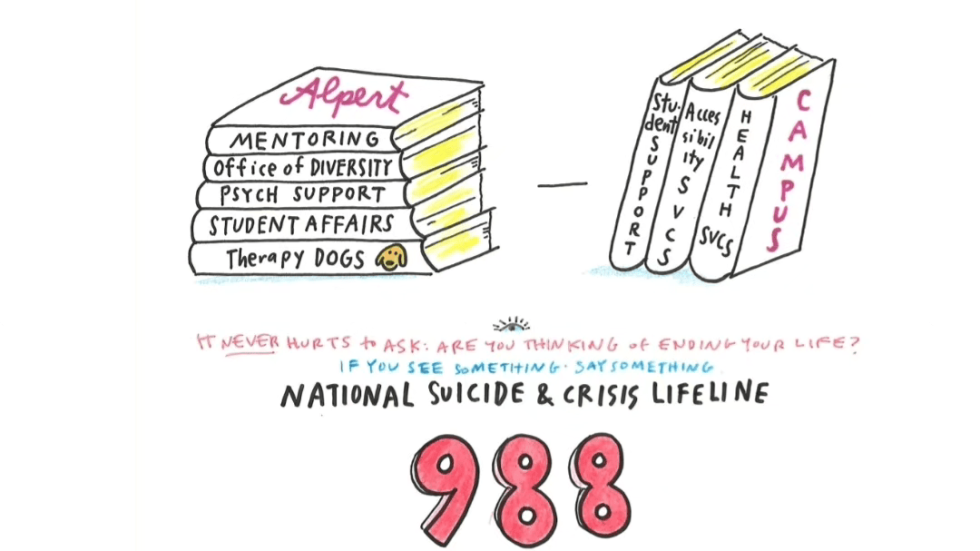 Alpert
MENTORING
Office of DIVERSITY
PSYCH SUPPORT
STUDENT AFFAIRS
Therapy DOGS
Student SUPPORT
Accessibility SVCS
HEALTH SVCS
CAMPUS
IT NEVER HURTS to ASK: ARE YOU THINKING OF ENDING YOUR LIFE?
IF YOU SEE SOMETHING · SAY SOMETHING
NATIONAL SUICIDE & CRISIS LIFELINE
988